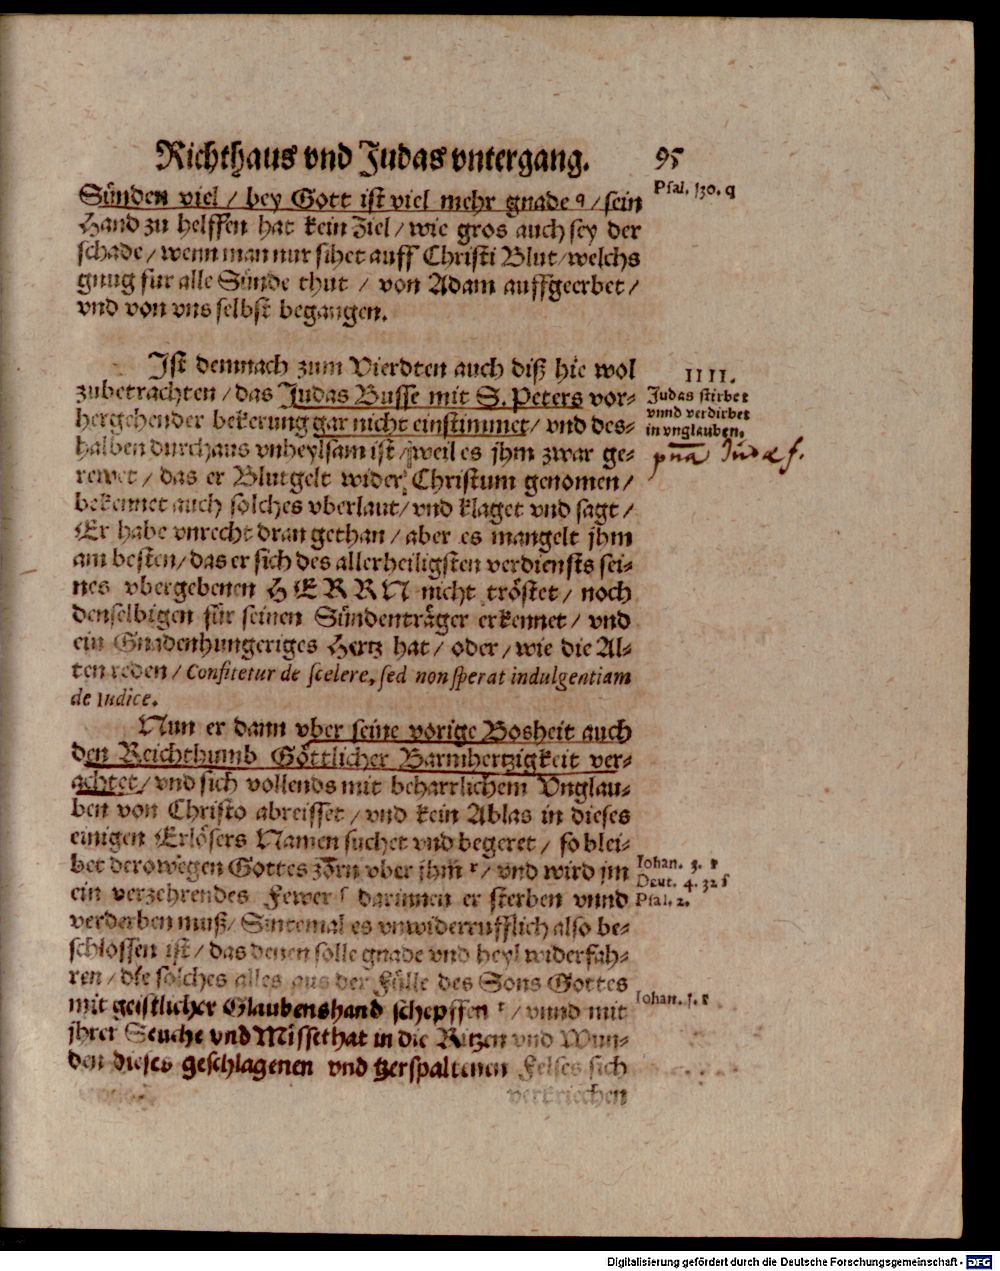 Richthaus vnd Judas vntergang. 95
Sünden viel / bey Gott ist viel mehr gnade q / sein
Psal. 130. q
Hand zu helffen hat kein Ziel / wie gros auch sey der
schade / wenn man nur sihet auff Christi Blut / welchs
gnug für alle Sünde thut / von Adam auffgeerbet /
vnd von vns selbst begangen.
Ist demnach zum Vierdten auch diß hie wol
IIII.
zubetrachten / das Judas Busse mit S. Peters vor-
Judas stirbet
vnnd verdirbet
in vnglauben.
hergehender bekerung gar nicht einstimmet / vnd des-
halben durchaus vnheylsam ist / weil es jhm zwar ge-
rewet / das er Blutgelt wider Christum genomen /
bekennet auch solches vberlaut / vnd klaget vnd sagt /
Er habe vnrecht dran gethan / aber es mangelt jhm
am besten / das er sich des allerheiligsten verdiensts sei-
nes vbergebenen HERRN nicht tröstet / noch
denselbigen für seinen Sündenträger erkennet / vnd
ein Gnadenhungeriges Hertz hat / oder / wie die Al-
ten reden / Confitetur de scelere, sed non sperat indulgentiam
de iudice.
Nun er dann vber seine vorige Bosheit auch
den Reichthumb Göttlicher Barmhertzigkeit ver-
achtet / vnd sich vollends mit beharrlichem Vnglau-
ben von Christo abreisset / vnd kein Ablas in dieses
einigen Erlösers Namen suchet vnd begeret / so blei-
bet derowegen Gottes zorn vber jhm r / vnd wird jm
Iohan. 3. r
Deut. 4. 32 s
Psal. 2.
ein verzehrendes Fewer s darinnen er sterben vnnd
verderben muß / Sintemal es vnwiderrufflich also be-
schlossen ist / das denen solle gnade vnd heyl widerfah-
ren / die solches alles aus der Fülle des Sons Gottes
mit geistlicher Glaubenshand schepffen t / vnnd mit
Iohan. 1. t
jhrer Seuche vnd Missethat in die Ritzen vnd Wun-
den dieses geschlagenen vnd tzerspaltenen Felses sich
verkriechen
Digitalisierung gefördert durch die Deutsche Forschungsgemeinschaft - DFG